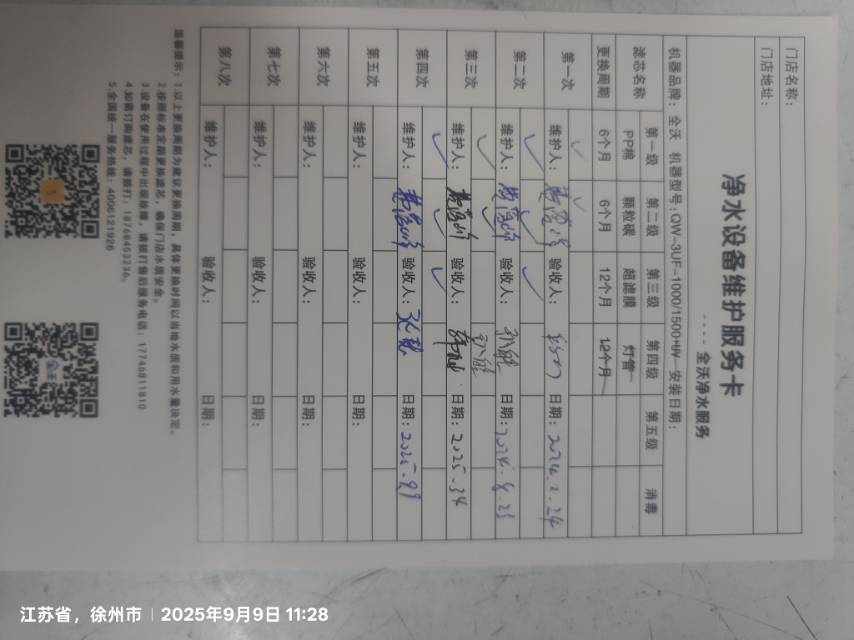 净水设备维护服务卡
---- 全沃净水服务
门店名称：
门店地址：
机器品牌：全沃 机器型号：QW-3UF-1000/1500+UV 安装日期：
滤芯名称 第一级 第二级 第三级 第四级 第五级 消毒
PP棉 颗粒碳 超滤膜 灯管
更换周期 6个月 6个月 12个月 12个月
第一次 ✓ ✓
维护人： 验收人： 日期：2024.2.24
第二次 ✓ ✓ ✓
维护人： 验收人： 日期：2024.8.23
第三次 ✓
维护人： 验收人： 日期：2025.3.4
第四次 ✓ ✓ ✓
维护人： 验收人： 日期：2025.9.9
第五次
维护人： 验收人： 日期：
第六次
维护人： 验收人： 日期：
第七次
维护人： 验收人： 日期：
第八次
维护人： 验收人： 日期：
温馨提示：1.以上更换周期为建议更换周期，具体更换时间以当地水质和用水量决定。
2.按照标准定期更换滤芯，确保门店水质安全。
3.设备在使用过程中出现故障，请拨打售后服务电话：17746811810
4.如需订购滤芯，请拨打：18768469236。
5.全国统一服务热线：4006121926
江苏省，徐州市 | 2025年9月9日 11:28